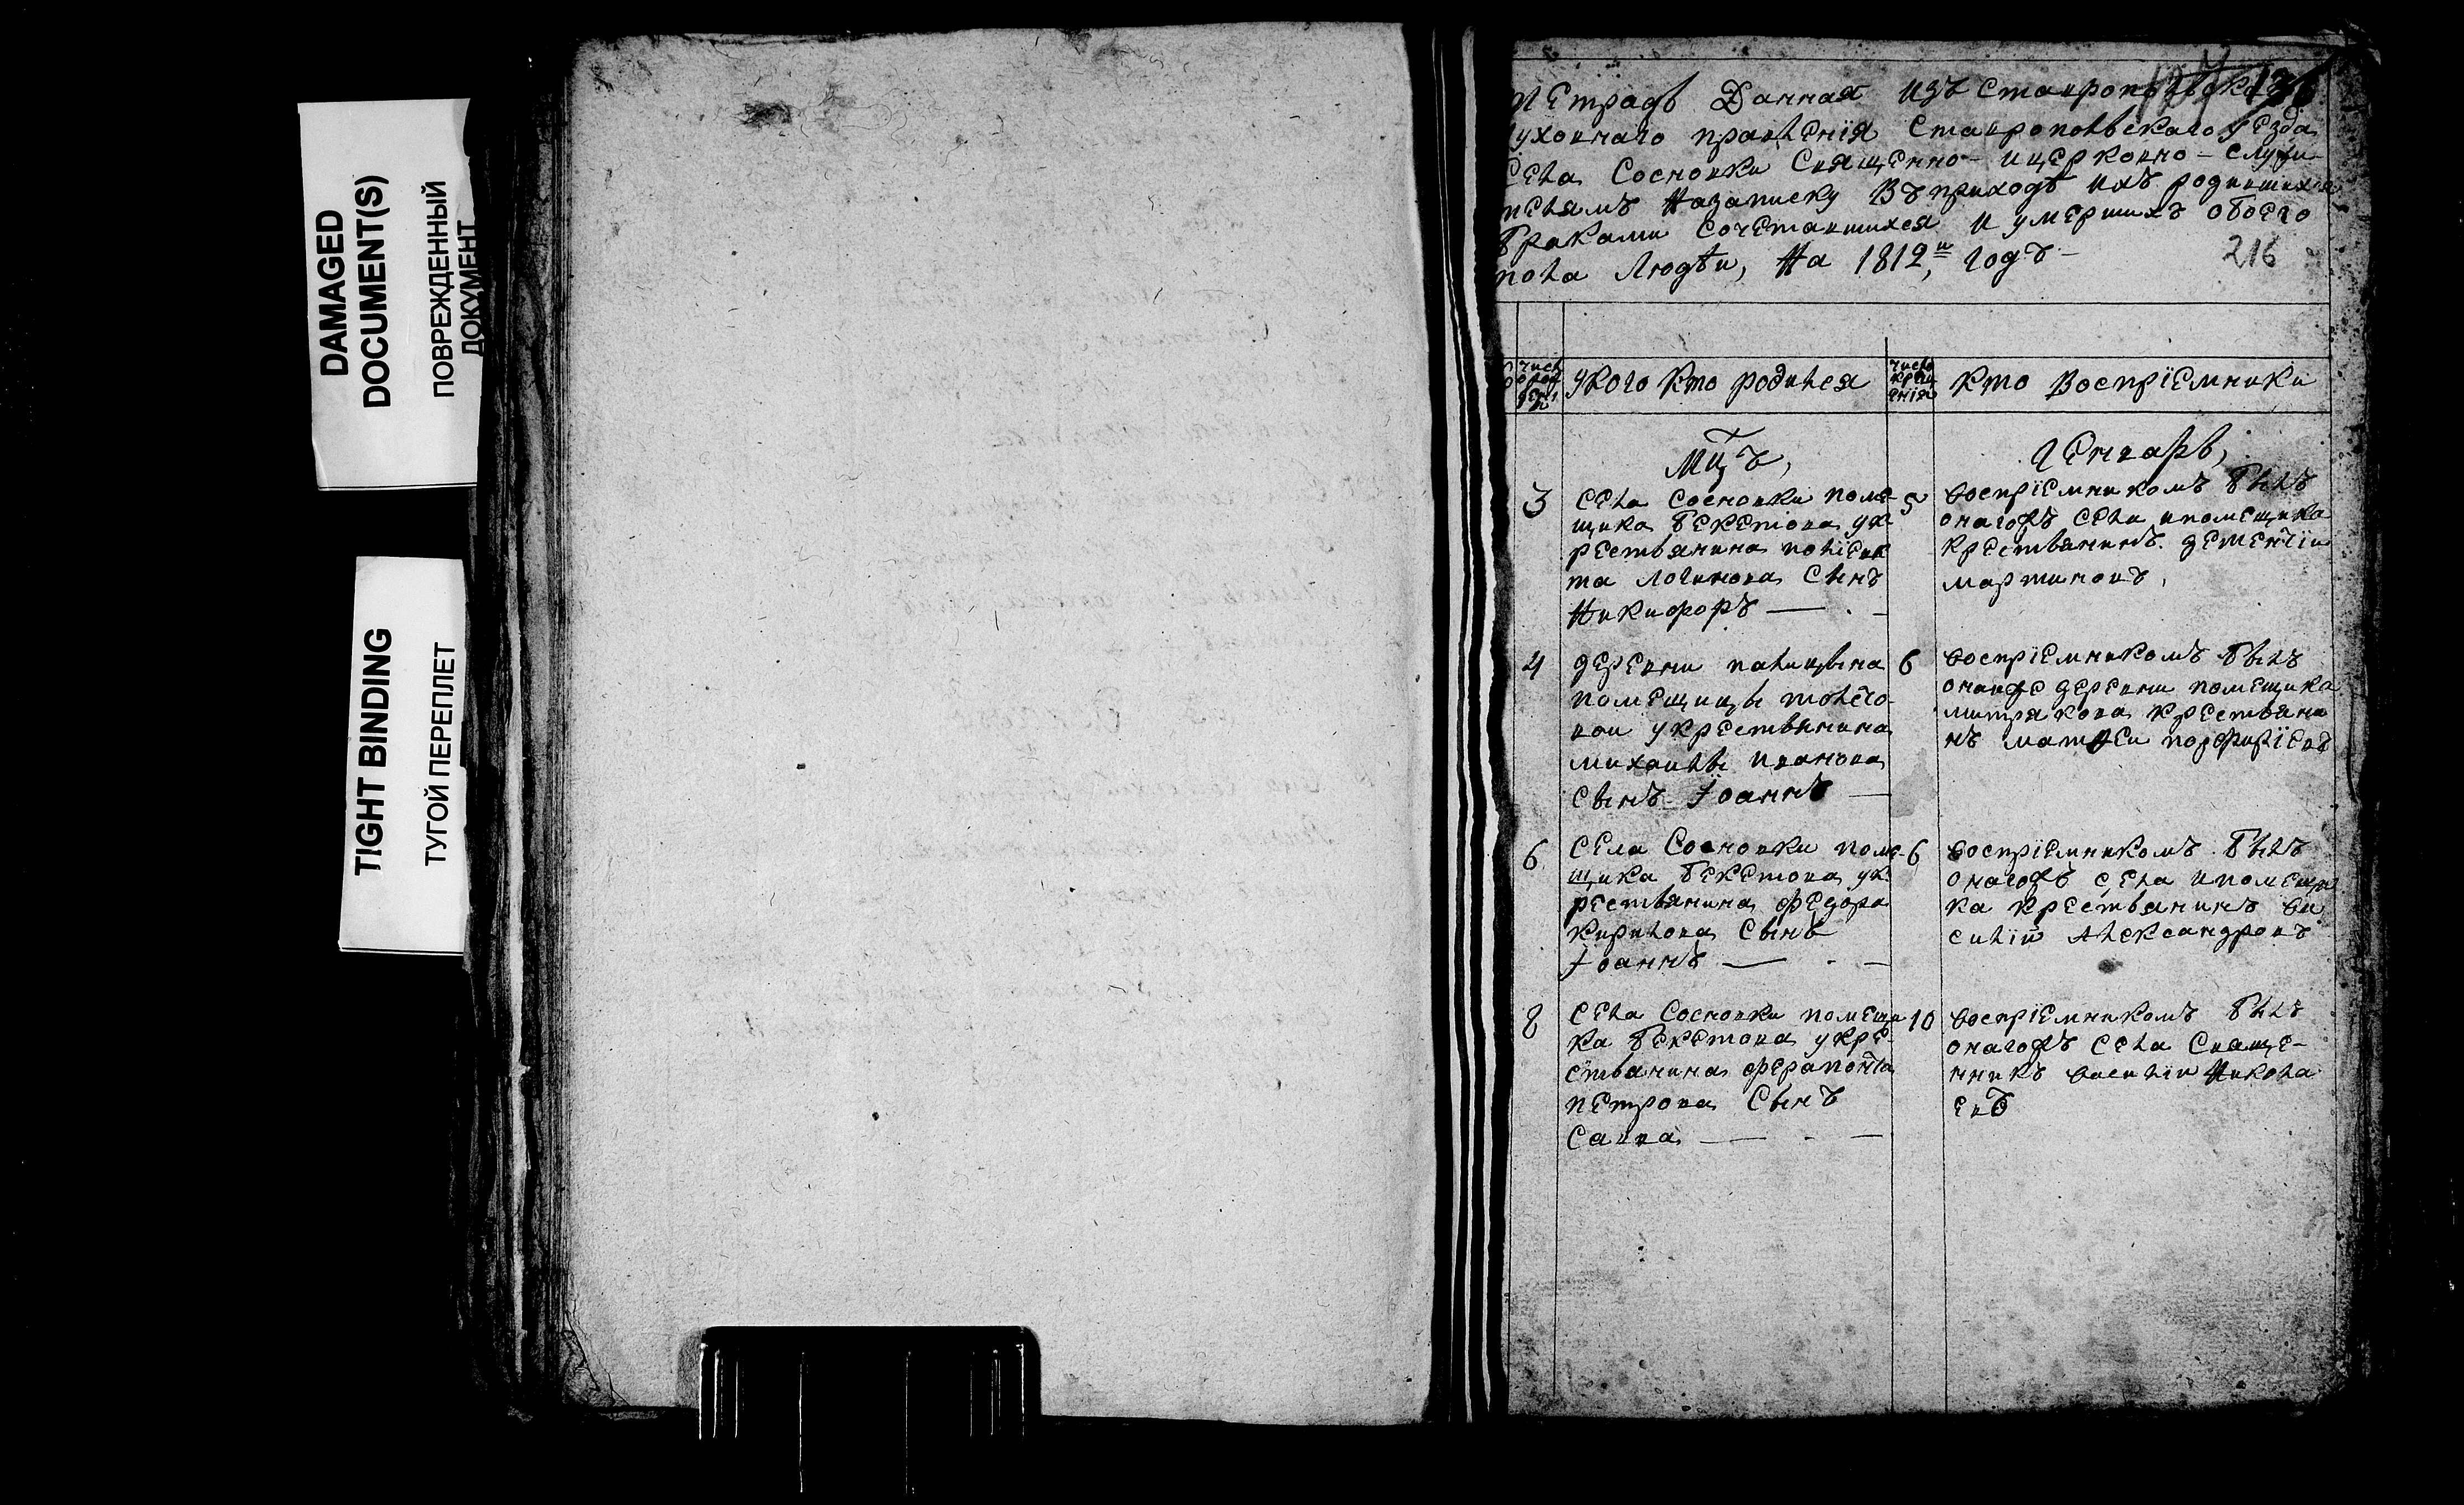 DAMAGED
DOCUMENT(S)
ПОВРЕЖДЕННЫЙ
ДОКУМЕНТ
TIGHT BINDING
ТУГОЙ ПЕРЕПЛЕТ
136
тетрадь Данная изъ Ставропольскаго
уховнаго правленїя Ставропольскаго уезда
Села Сосновки Священно- ицерковно-служи
телямъ Назаписку Въприходѣ ихъ родившихся
браками Сочетавшихся и умершихъ обоего
пола Людѣи, На 1812,и годъ-
216
укого кто родился
число
крещ
енїя
кто Воспрїемники
Мцъ,
Генварь,
3
Села Сосновки поме-
щика бекетова ук
рестьянина полїевк
та логинова Сынъ
Никифоръ
5
воспрїемникомъ былъ
оногожъ села ипомещика
крестьянинъ дементїи
мартиновъ,
4
деревни палицына
помещицы толсто-
вои укрестьянина
михаилы иванова
Сынъ Iоаннъ
6
воспрїемникомъ былъ
оноиже деревни помещика
митрякова крестьяни
нъ матвеи порфирїевъ
6
Села Сосновки поме-
щика бекетова ук
рестьянина федора
кирилова Сынъ
Iоаннъ
6
воспрїемникомъ былъ
оногожъ села ипомещи
ка крестьянинъ ва
силїи Александровъ
8
Села Сосновки помещи
ка бекетова укре-
стьянина ферапонта
петрова Сынъ
Савва
10
воспрїемникомъ былъ
оногожъ села Свяще-
нникъ василїи Никола
евъ